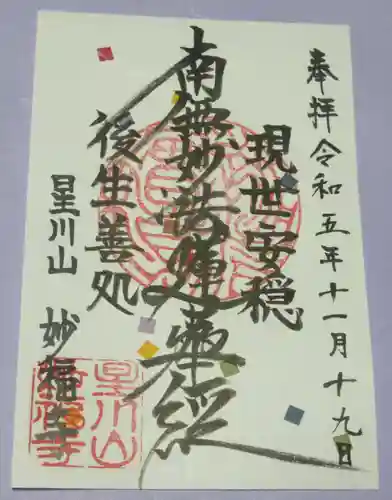 奉拝 令和五年十一月十九日
現世安穏
南無妙法蓮華経
後生善処
星川山 妙福寺